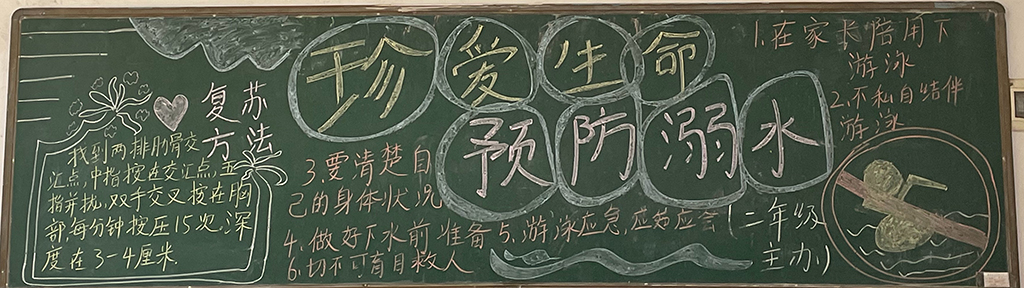 珍爱生命
预防溺水
复苏
方法
找到两排肋骨交
汇点,中指按在交汇点,五
指并拢,双手交叉按在胸
部,每分钟按压15次,深
度在3-4厘米.
1.在家长陪用下
游泳
2.不私自结伴
游泳
3.要清楚自
己的身体状况
4.做好下水前准备
5.游泳应急,应对应会
6.切不可盲目救人
(二年级
主办)